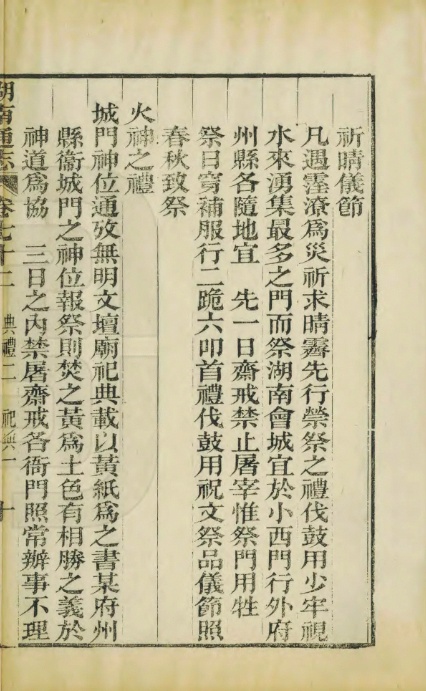 祈晴儀節
凡遇霪潦爲災祈求晴霽先行禜祭之禮伐鼓用少牢視
水來湧集最多之門而祭湖南會城宜於小西門行外府
州縣各隨地宜　先一日齋戒禁止屠宰惟祭門用牲
祭日穿補服行二跪六叩首禮伐鼓用祝文祭品儀節照
春秋致祭
火神之禮
城門神位通攷無明文壇廟祀典載以黃紙爲之書某府州
縣衞城門之神位報祭則焚之黃爲土色有相勝之義於
神道爲協　三日之內禁屠齋戒各衙門照常辦事不理
湖南通志　卷七十二　典禮二　祀典一　十